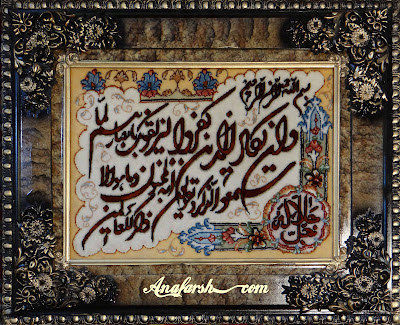 بسم الله الرحمن الرحيم
وان يكاد الذين كفروا ليزلقونك بابصارهم لما
سمعوا الذكر ويقولون انه لمجنون وما هو الا
ذكر للعالمين
جل جلاله
Anafarsh.com